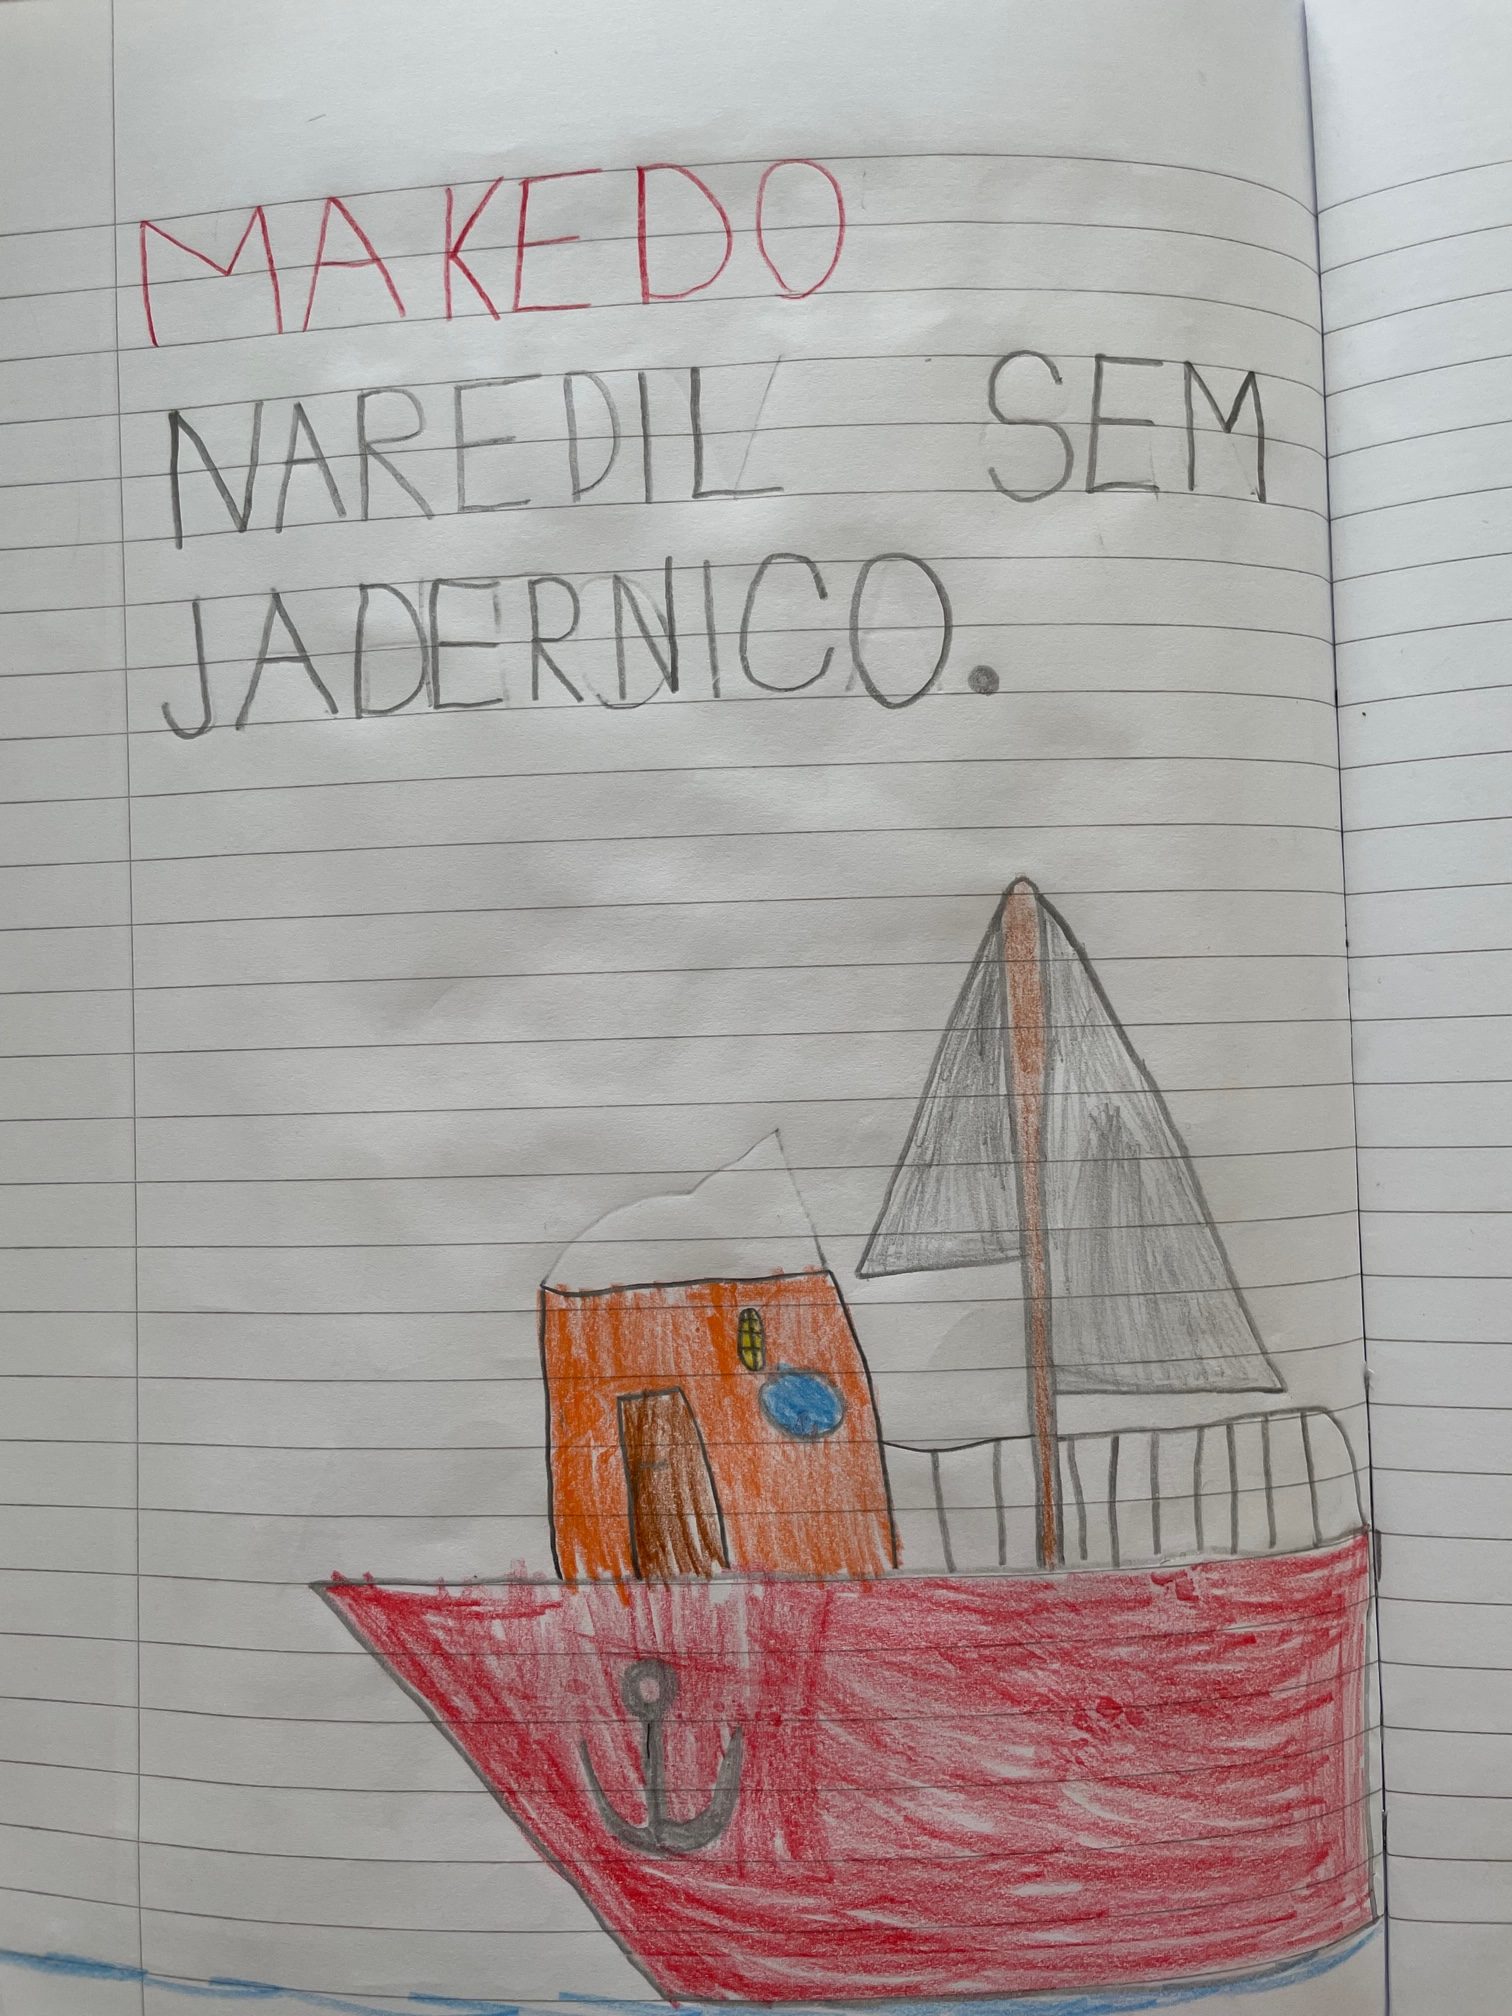 MAKEDO
NAREDIL SEM
JADERNICO.